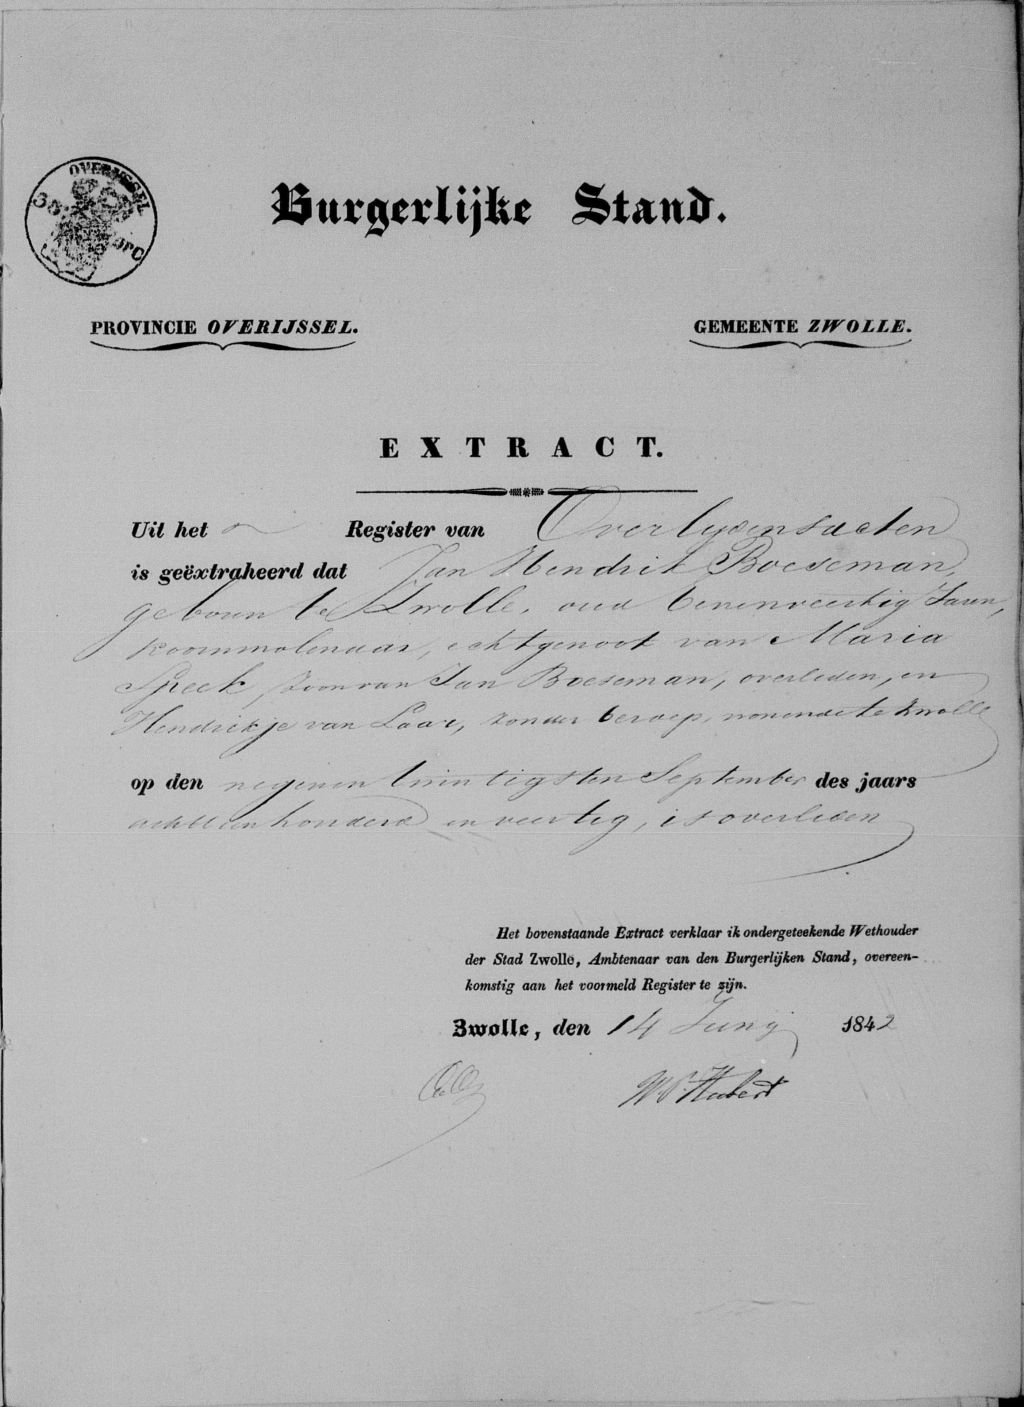 OVERIJSSEL
Burgerlijke Stand.
PROVINCIE OVERIJSSEL. GEMEENTE ZWOLLE.
EXTRACT.
Uit het Register van Overlijdensacten
is geëxtraheerd dat Jan Hendrik Boeseman,
geboren te Zwolle, oud eenenveertig Jaren,
Koornmolenaar, echtgenoot van Maria
Speek, zoon van Jan Boeseman, overleden, en
Hendrikje van Laar, zonder beroep, wonende te Zwolle
op den negenen twintigsten September des jaars
achttien honderd en veertig, is overleden
Het bovenstaande Extract verklaar ik ondergeteekende Wethouder
der Stad Zwolle, Ambtenaar van den Burgerlijken Stand, overeen-
komstig aan het voormeld Register te zijn.
Zwolle, den 14 Junij 1842
Hubert